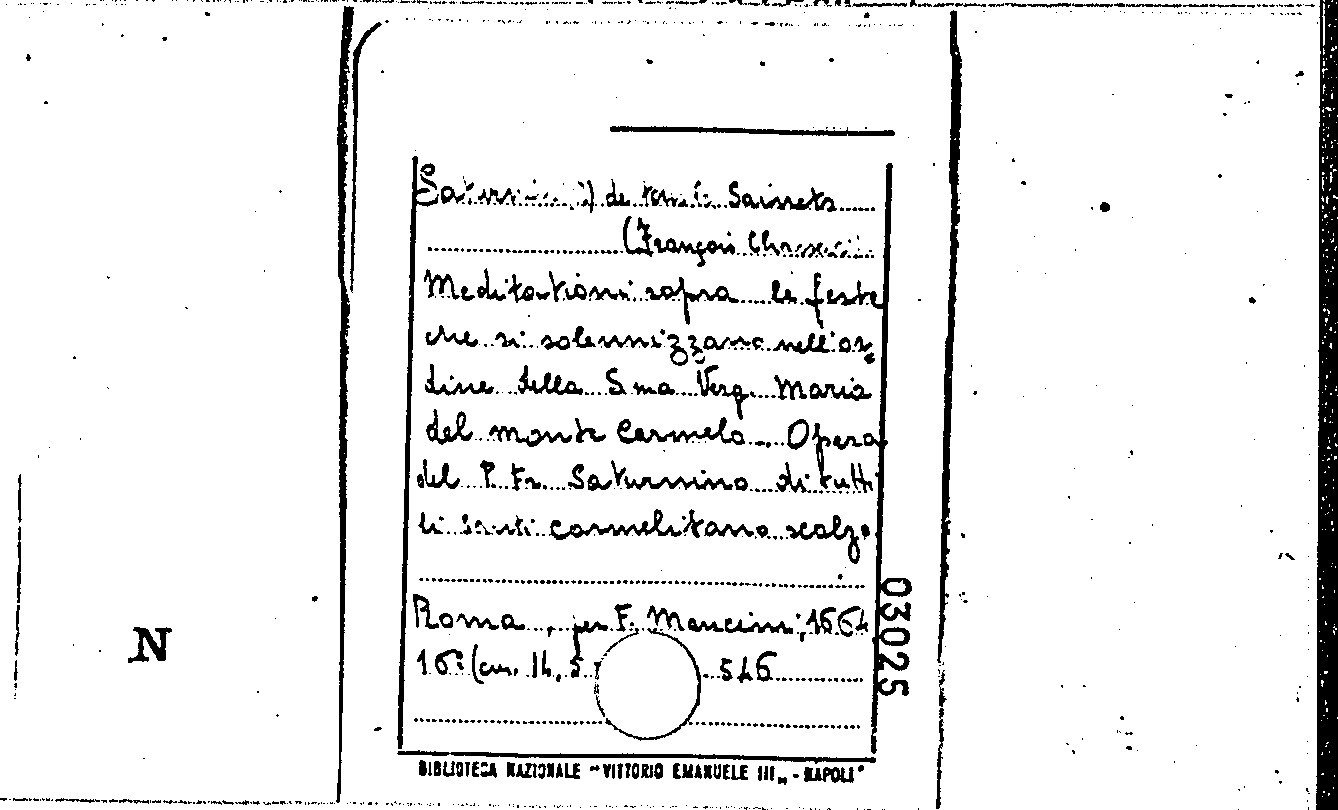 de Sainets
(François
Meditationi sopra le feste
che si solennizzano nell'or=
dine della S.ma Verg. Maria
del monte Carmelo. Opera
del P. Fr. Saturnino di tutti
li Santi carmelitano scalzo
Roma, per F. Mancini, 1664
16° (cm. 14,5 546
BIBLIOTECA NAZIONALE "VITTORIO EMANUELE III„ - NAPOLI
03025
N